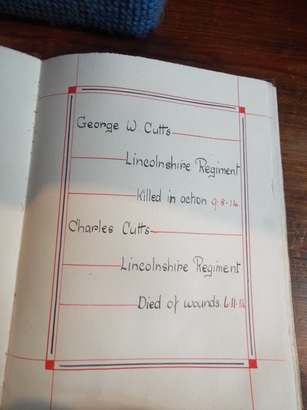 George W Cutts
Lincolnshire Regiment
Killed in action 9.8.14
Charles Cutts
Lincolnshire Regiment
Died of wounds 6.11.14